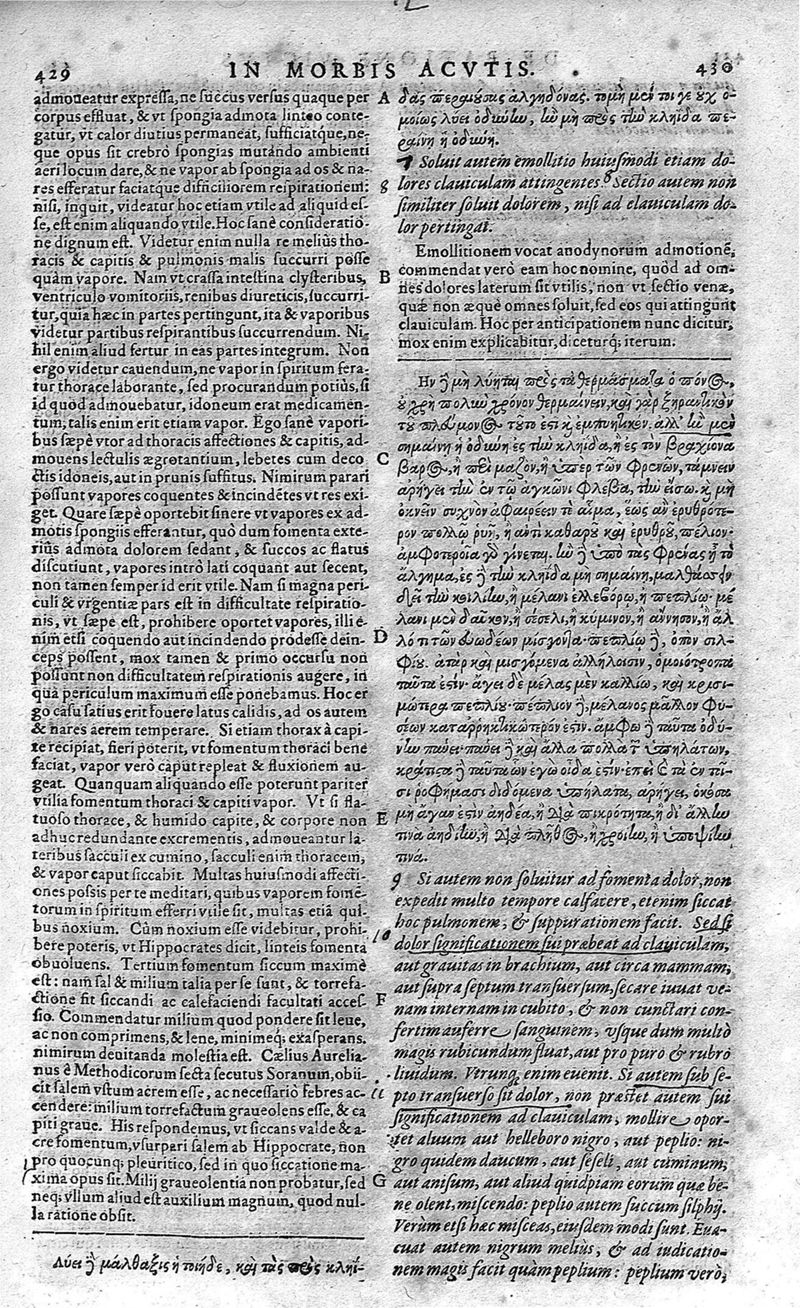 429 IN MORBIS ACVTIS. 430
admoueatur expressa, ne succus versus quaque per
corpus effluat, & vt spongia admota linteo conte-
gatur, vt calor diutius permaneat, sufficiatque, ne-
que opus sit crebrò spongias mutando ambienti
aeri locum dare, & ne vapor ab spongia ad os & na-
res efferatur faciatque difficiliorem respirationem:
nisi, inquit, videatur hoc etiam vtile ad aliquid es-
se, est enim aliquando vtile. Hoc sanè consideratio-
ne dignum est. Videtur enim nulla re melius tho-
racis & capitis & pulmonis malis succurri posse
quàm vapore. Nam vt crassa intestina clysteribus,
ventriculo vomitoriis, renibus diureticis, succurri-
tur, quia hæc in partes pertingunt, ita & vaporibus
videtur partibus respirantibus succurrendum. Ni-
hil enim aliud fertur in eas partes integrum. Non
ergo videtur cauendum, ne vapor in spiritum fera-
tur thorace laborante, sed procurandum potiùs, si
id quod admouebatur, idoneum erat medicamen-
tum, talis enim erit etiam vapor. Ego sanè vapori-
bus sæpè vtor ad thoracis affectiones & capitis, ad-
mouens lectulis ægrotantium, lebetes cum deco
ctis idoneis, aut in prunis suffitus. Nimirum parari
possunt vapores coquentes & incidẽtes vt res exi-
get. Quare sæpè oportebit sinere vt vapores ex ad-
motis spongiis efferantur, quò dum fomenta exte-
riùs admota dolorem sedant, & succos ac flatus
discutiunt, vapores intrò lati coquant aut secent,
non tamen semper id erit vtile. Nam si magna peri-
culi & vrgentiæ pars est in difficultate respiratio-
nis, vt sæpè est, prohibere oportet vapores, illi e-
nim etsi coquendo aut incindendo prodesse dein-
ceps possent, mox tamen & primo occursu non
possunt non difficultatem respirationis augere, in
qua periculum maximum esse ponebamus. Hoc er
go casu satius erit fouere latus calidis, ad os autem
& nares aerem temperare. Si etiam thorax à capi-
te recipiat, fieri poterit, vt fomentum thoraci benè
faciat, vapor verò caput repleat & fluxionem au-
geat. Quanquam aliquando esse poterunt pariter
vtilia fomentum thoraci & capiti vapor. Vt si fla-
tuoso thorace, & humido capite, & corpore non
adhuc redundante excrementis, admoueantur la-
teribus sacculi ex cumino, sacculi enim thoracem,
& vapor caput siccabit. Multas huiusmodi affecti-
ones possis per te meditari, quibus vaporem fomẽ-
torum in spiritum efferri vtile sit, multas etiã qui-
bus noxium. Cùm noxium esse videbitur, prohi-
bere poteris, vt Hippocrates dicit, linteis fomenta
obuoluens. Tertium fomentum siccum maximè
est: nam sal & milium talia per se sunt, & torrefa-
ctione fit siccandi ac calefaciendi facultati acces-
sio. Commendatur milium quod pondere sit leue,
ac non comprimens, & lene, minimeq; exasperans,
nimirum deuitanda molestia est. Cælius Aurelia-
nus è Methodicorum secta secutus Soranum, obii-
cit salem vstum acrem esse, ac necessariò febres ac-
cendere: milium torrefactum graueolens esse, & ca
piti graue. His respondemus, vt siccans valde & a-
cre fomentum, vsurpari salem ab Hippocrate, non
pro quocunq; pleuritico, sed in quo siccatione ma-
xima opus sit. Milij graueolentia non probatur, sed
neq; vllum aliud est auxilium magnum, quod nul-
la ratione obsit.
Λύει ἢ μάλθαξις ἡ τοιήδε, καὶ τὰς πρὸς κληῖ-
A δας περαιούσας ἀλγηδόνας. τομὴ μέν τοι γε οὐχ ὁ-
μοίως λύει ὀδύνην, ἢν μὴ πρὸς τὴν κληῖδα πε-
ραίνῃ ἡ ὀδύνη.
7 Soluit autem emollitio huiusmodi etiam do-
lores clauiculam attingentes. 8 Sectio autem non
8 similiter soluit dolorem, nisi ad clauiculam do-
lor pertingat.
Emollitionem vocat anodynorum admotionẽ,
commendat verò eam hoc nomine, quòd ad om-
B nes dolores laterum sit vtilis, non vt sectio venæ,
quæ non æquè omnes soluit, sed eos qui attingunt
clauiculam. Hoc per anticipationem nunc dicitur,
mox enim explicabitur, diceturq; iterum.
Ην ἢ μὴ λύηται πρὸς τὰ θερμάσματα ὁ πόνος,
οὐ χρὴ πολὺν χρόνον θερμαίνειν, καὶ γὰρ ξηραντικὸν
τοῦ πλεύμονος τοῦτό ἐστι καὶ ἐμπυητικόν. ἀλλ' ἢν μὲν
σημαίνῃ ἡ ὀδύνη ἐς τὴν κληῖδα, ἢ ἐς τὸν βραχίονα
C βάρος, ἢ περὶ μαζὸν, ἢ ὑπὲρ τῶν φρενῶν, τάμνειν
ἀρήγει τὴν ἐν τῷ ἀγκῶνι φλέβα, τὴν εἴσω. καὶ μὴ
ὀκνεῖν συχνὸν ἀφαιρέειν τὸ αἷμα, ἕως ἂν ἐρυθρότε-
ρον πολλῷ ῥυῇ, ἢ ἀντὶ καθαροῦ καὶ ἐρυθροῦ, πέλιον·
ἀμφότερα γὰρ γίνεται. ἢν ἢ ὑπὸ τὰς φρένας ᾖ τὸ
ἄλγημα, ἐς ἢ τὴν κληῖδα μὴ σημαίνῃ, μαλθάσσειν
δεῖ τὴν κοιλίην, ἢ μέλανι ἐλλεβόρῳ, ἢ πεπλίῳ· μέ-
λανι μὲν δαῦκον, ἢ σέσελι, ἢ κύμινον, ἢ ἄννησον, ἢ ἄλ-
D λό τι τῶν εὐωδέων μίσγοντα· πεπλίῳ ἢ, ὀπὸν σιλ-
φίου. ἀτὰρ καὶ μισγόμενα ἀλλήλοισιν, ὁμοιότροπα
ταῦτά ἐστιν· ἄγει δὲ μέλας μὲν καλλίω, καὶ κρισι-
μώτερα πεπλίου· πέπλιον ἢ, μέλανος μᾶλλον φυ-
σέων καταρρηκτικώτερόν ἐστιν. ἄμφω ἢ ταῦτα ὀδύ-
νην παύει· παύει ἢ καὶ ἄλλα πολλὰ τῶν ὑπηλάτων,
κράτιστα ἢ ταῦτα ὧν ἐγὼ οἶδά ἐστιν. ἐπεὶ καὶ τὰ ἐν τοῖ-
σι ῥοφήμασι διδόμενα ὑπήλατα, ἀρήγει, ὁκόσα
E μὴ ἄγαν ἐστὶν ἀηδέα, ἢ διὰ πικρότητα, ἢ δι' ἄλλην
τινὰ ἀηδίην, ἢ διὰ πλῆθος, ἢ χροιὴν, ἢ ὑποψίην
τινά.
9 Si autem non soluitur ad fomenta dolor, non
expedit multo tempore calfacere, etenim siccat
hoc pulmonem, & suppurationem facit. Sed si
10 dolor significationem sui præbeat ad clauiculam,
aut grauitas in brachium, aut circa mammam,
aut supra septum transuersum, secare iuuat ve-
F nam internam in cubito, & non cunctari con-
fertim auferre sanguinem, vsque dum multò
magis rubicundum fluat, aut pro puro & rubro
liuidum. Vtrunq; enim euenit. Si autem sub se-
11 pto transuerso sit dolor, non præstet autem sui
significationem ad clauiculam, mollire opor-
tet aluum aut helleboro nigro, aut peplio: ni-
gro quidem daucum, aut seseli, aut cuminum,
G aut anisum, aut aliud quidpiam eorum quæ be-
ne olent, miscendo: peplio autem succum silphij.
Verùm etsi hæc misceas, eiusdem modi sunt. Eua-
cuat autem nigrum meliùs, & ad iudicatio-
nem magis facit quàm peplium: peplium verò,